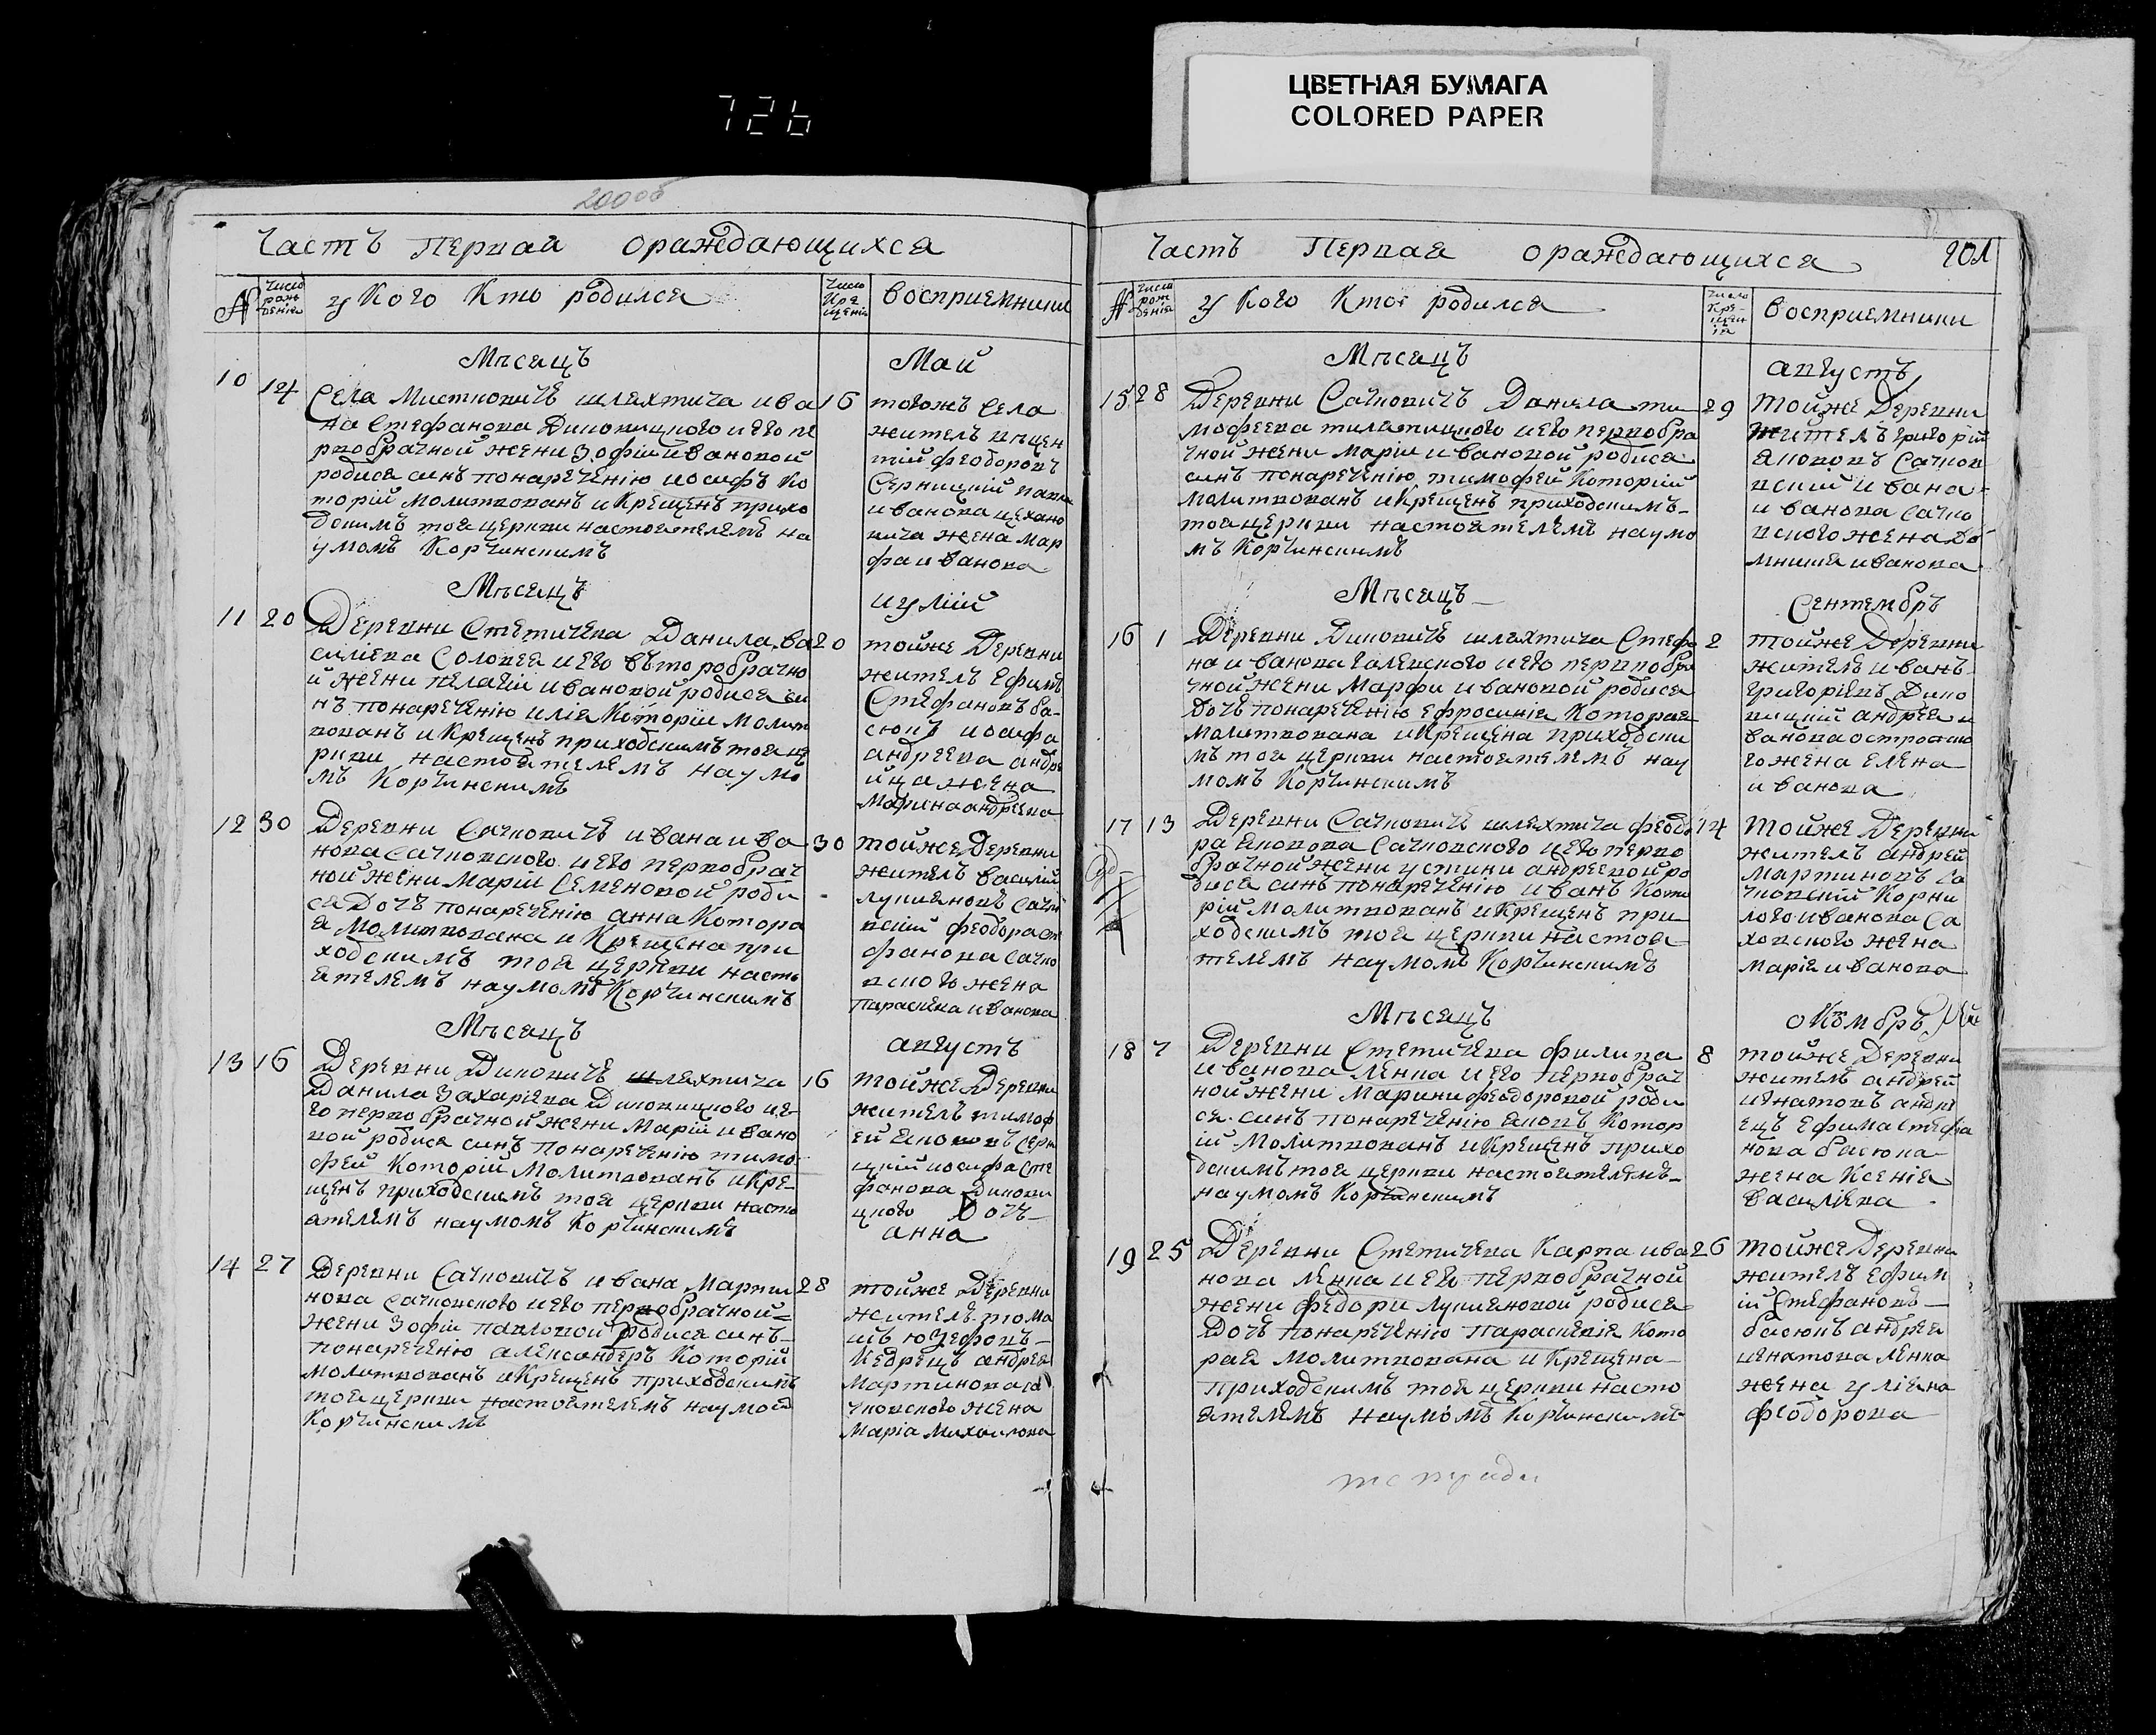 726
ЦВЕТНАЯ БУМАГА
COLORED PAPER
200об
Часть Первая ораждающихся
№
Число рож денія
у Кого Кто родился
Число Кре щенія
восприемники
Мѣсяцъ
Май
10
14
Села Мистковичъ шляхтича ива
на Стефанова Диковицкого иего пе
рвобрачной жени Зофіи ивановой
родися синъ понареченію иосифъ Ко
торій молитвованъ иКрещенъ прихо
дскимъ тоя церкви настоятелемъ на
умомъ Корчинскимъ
16
тогожъ Села
житель викен
тій феодоровъ
Серницкій павла
иванова цехано
вича жена мар
фа иванова
Мѣсяцъ
иулій
11
20
Деревни Ститичева Данила ва
силиева Соловея иего второбрачно
й жени пелагіи ивановой родися си
нъ понареченію илія Которій молит
вованъ иКрещенъ приходскимъ тоя це
ркви настоятелемъ наумо
мъ Корчинскимъ
20
тойже Деревни
житель Ефимъ
Стефановъ ба-
сюкъ иосифа
андреева андре
йца жена
Марина андреева
12
30
Деревни Сачковичъ ивана ива
нова Сачковского иего первобрач
ной жени Маріи Семеновой роди
ся Дочъ понареченію анна Котора
я Молитвована и Крещена при
ходскимъ тоя церкви насто
ятелемъ наумомъ Корчинскимъ
30
тойже Деревни
житель василій
лукияновъ Сачко
вскій феодора сте
фанова Сачко
вского жена
Параскева иванова
Мѣсяцъ
августъ
13
16
Деревни Диковичъ шляхтича
Данила Захаріева Диковицкого ие-
го первобрачной жени Маріи ивано
вой родися синъ понареченію тимо
фей Которій Молитвованъ иКре-
щенъ приходскимъ тоя церкви насто
ятелемъ наумомъ Корчинскимъ
16
тойже Деревни
житель тимоф
ей яковов Серни
цкій иосифа Сте
фанова Дикови
цкого Дочъ
анна
14
27
Деревни Сачковичъ ивана Марти
нова Сачковского иего первобрачной
жени Зофіи павловой родися синъ
понареченію александеръ Которій
молитвованъ иКрещенъ приходскимъ
тоя церкви настоятелемъ наумом
Корчинскимъ
28
тойже Деревни
житель тома
шъ юзефовъ
Кедрецъ андрея
Мартинова Са
чковского жена
Маріа Михаилова
Часть Первая ораждающихся
201
№
Число рож денія
у Кого Кто родился
Число Кре щен ія
восприемники
Мѣсяцъ
августъ
15
28
Деревни Сачковичъ Данила ти
мофеева тилятицкого иего первобра
чной жени Маріи ивановой родися
синъ понареченію тимофей Которій
молитвованъ иКрещенъ приходскимъ
тоя церкви настоятелемъ наумо
мъ Корчинскимъ
29
тойже Деревни
житель григорій
яковов Сачков
вский ивана
иванова Сачко
вского жена До
мникия иванова
Мѣсяцъ
Сентембръ
16
1
Деревни Диковичъ шляхтича Стефа
на иванова галевского иего первобра
чной жени Марфи ивановой родися
Дочъ понареченію Ефросинія Которая
молитвована иКрещена приходски
мъ тоя церкви настоятелемъ нау
момъ Корчинскимъ
2
тойже Деревни
житель иванъ
григоріевъ Дико
вицкій андрея и
ванова островско
го жена Елена
иванова
17
13
Деревни Сачковичъ шляхтича феодо
ра яковова Сачковского иего перво
брачной жени устини андреевой ро
дися синъ понареченію иванъ Кото
рій молитвованъ иКрещенъ при
ходскимъ тоя церкви настоя
телемъ наумомъ Корчинскимъ
14
тойже Деревни
житель андрей
Мартиновъ Са
чковскій Корни
лого иванова Са
ховского жена
Марія иванова
Мѣсяцъ
октомбръ
18
7
Деревни Ститичева филипа
иванова ленка иего первобрач
ной жени Марини феодоровой роди
ся синъ понареченію яковъ Котор
ій Молитвованъ иКрещенъ прихо
дскимъ тоя церкви настоятелемъ
наумомъ Корчинскимъ
8
тойже Деревни
житель андрей
игнатовъ андре
ецъ Ефима Стефа
нова басюка
жена Ксенія
василіева
19
25
Деревни Ститичева Карпа ива
нова ленка иего первобрачной
жени федори лукияновой родися
Дочъ понареченію параскевія Кото
рая молитвована иКрещена
приходскимъ тоя церкви насто
ятелемъ наумомъ Корчинскимъ
26
тойже Деревни
житель Ефим
ій Стефановъ
басюкъ андрея
игнатова ленка
жена уліяна
феодорова